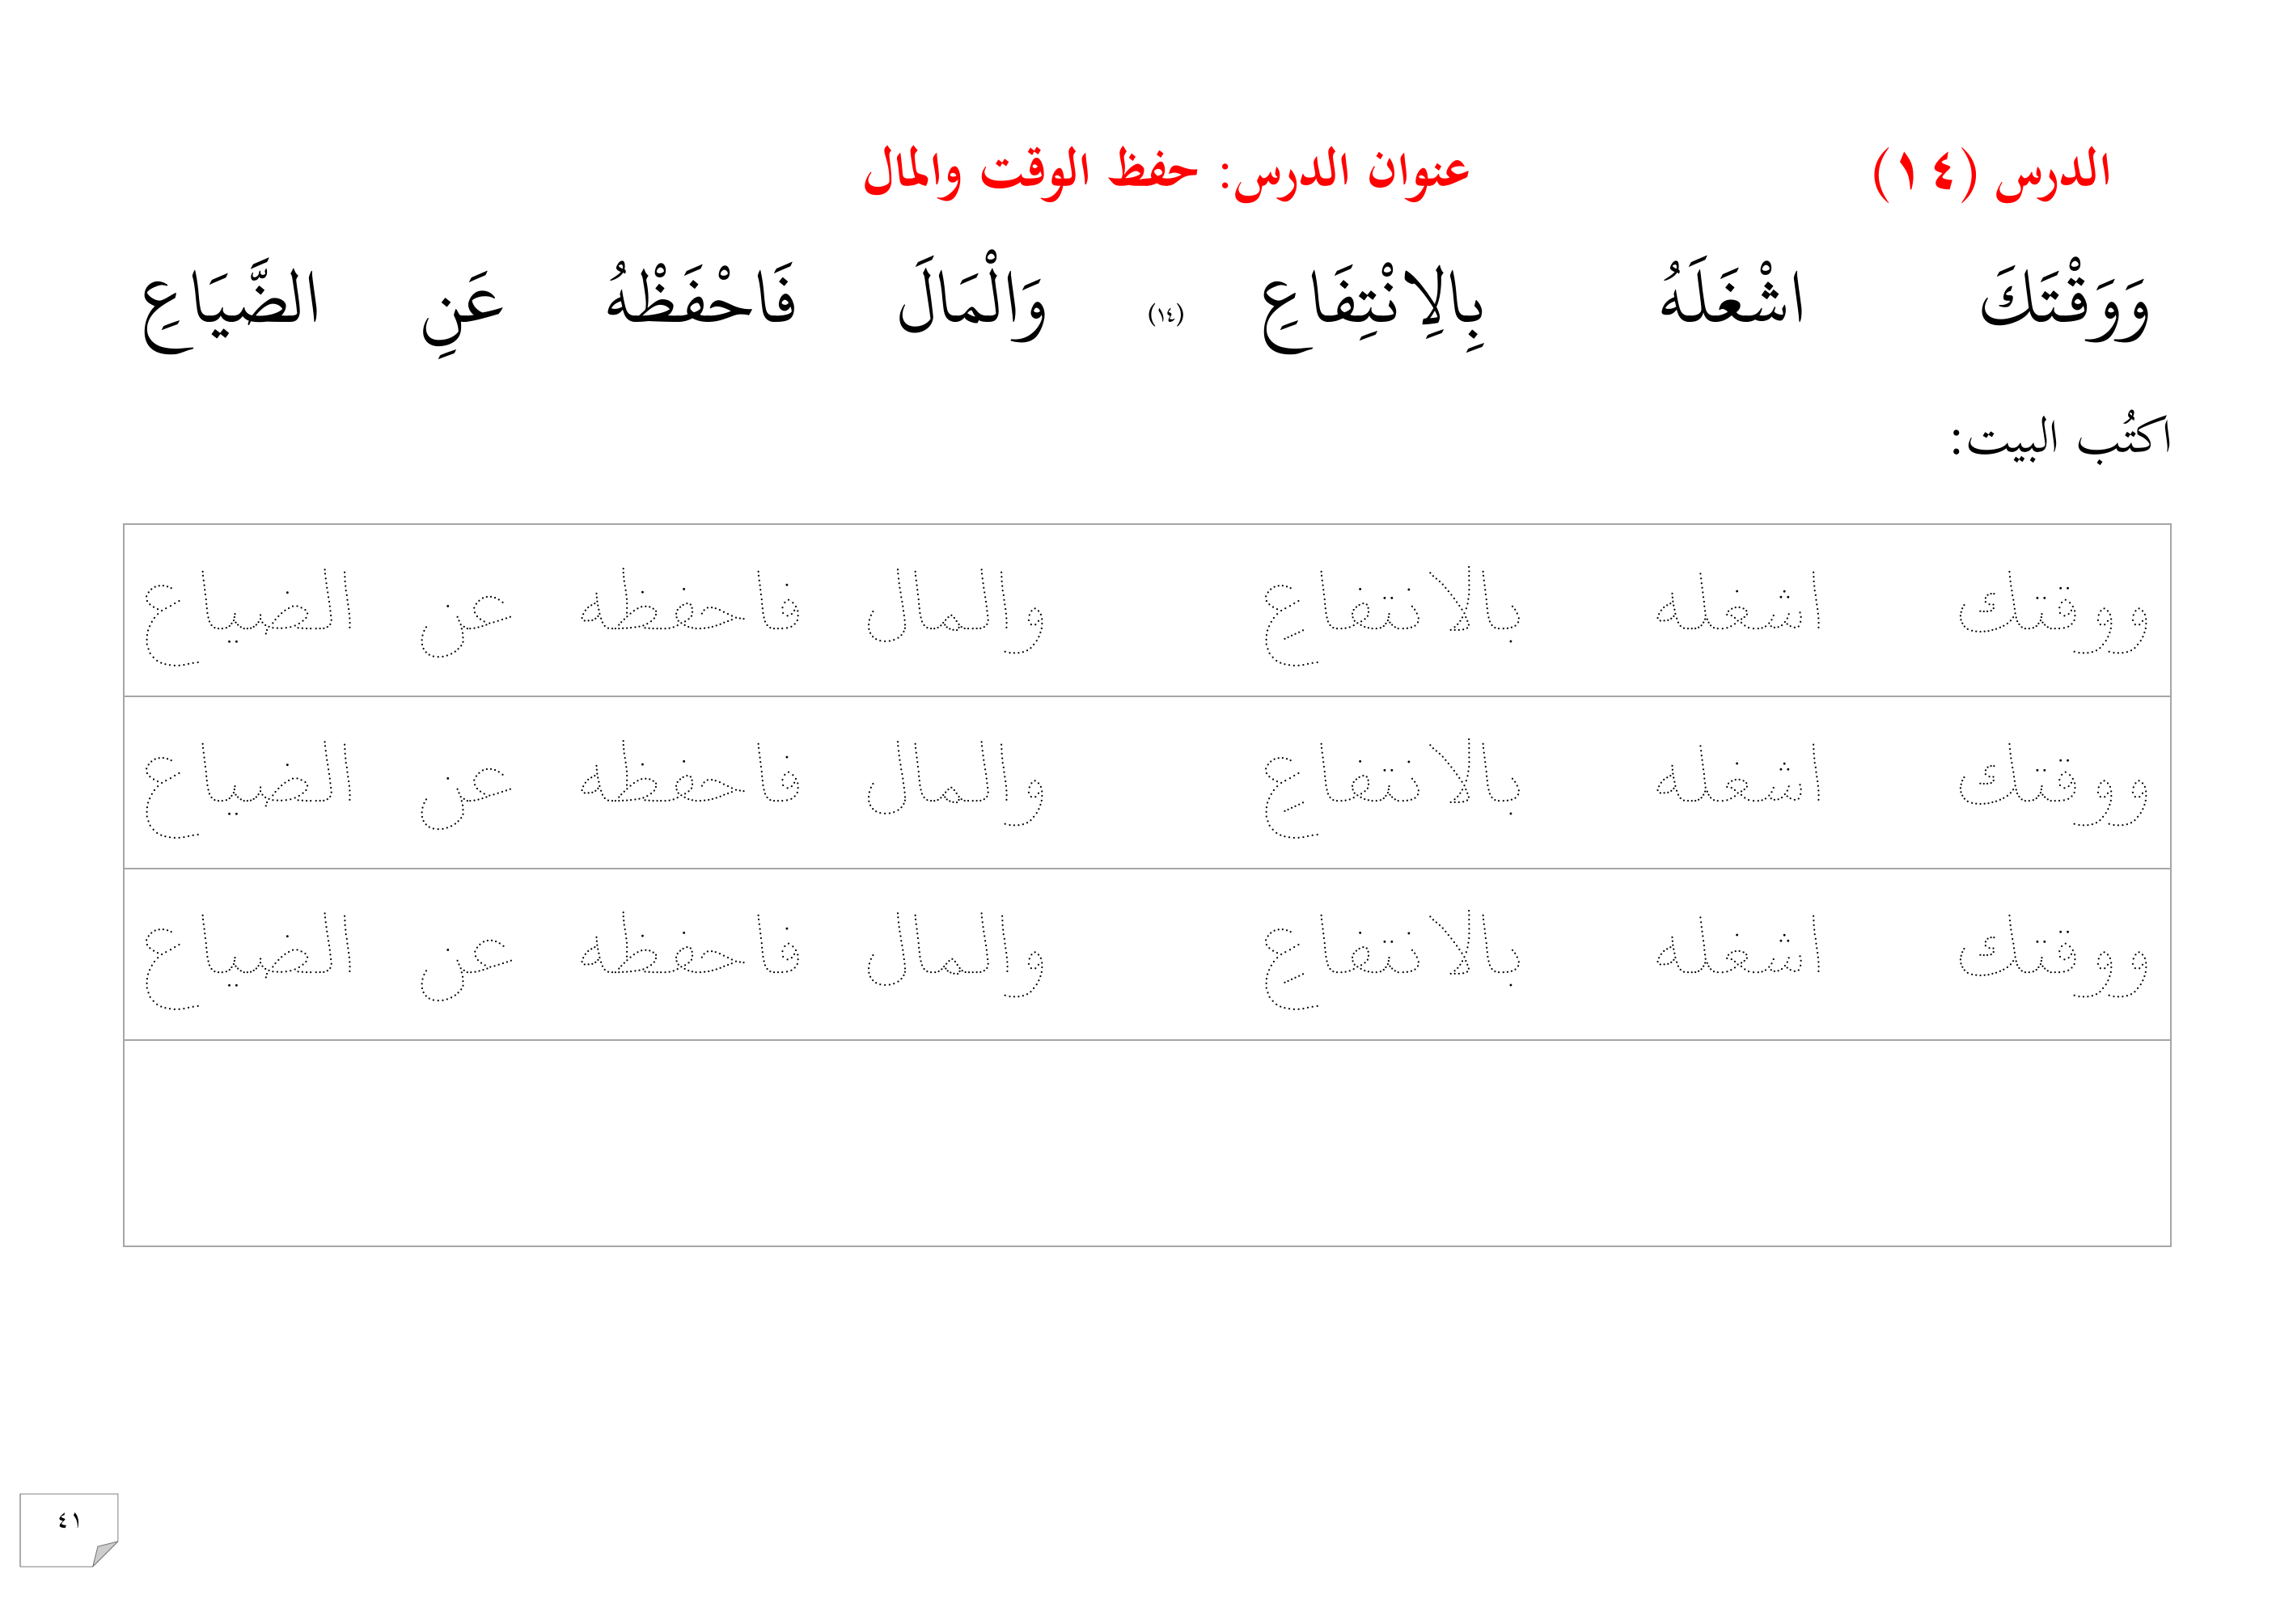 الدرس (١٤) عنوان الدرس: حفظ الوقت والمال
وَوَقْتَكَ اشْغَلَهُ بِالِانْتِفَاعِ (١٤) وَالْمَالَ فَاحْفَظْهُ عَنِ الضَّيَاعِ
اكتُب البيت:
ووقتك اشغله بالانتفاع والمال فاحفظه عن الضياع
ووقتك اشغله بالانتفاع والمال فاحفظه عن الضياع
ووقتك اشغله بالانتفاع والمال فاحفظه عن الضياع
٤١